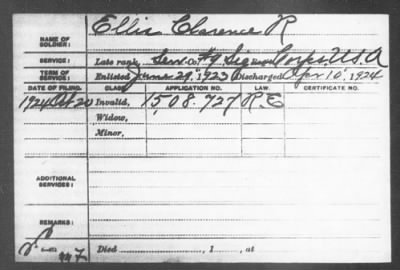 NAME OF SOLDIER: Ellis Clarence R
SERVICE: Late rank, Serv. Co. #9 Sig Corps, U.S.A
TERM OF SERVICE: Enlisted June 29, 1923 Discharged Apr 10, 1924
DATE OF FILING. CLASS. APPLICATION NO. LAW. CERTIFICATE NO.
1924 20 Invalid, 1,508.727 R.E
Widow,
Minor,
ADDITIONAL SERVICES:
REMARKS:
Died , 1 , at